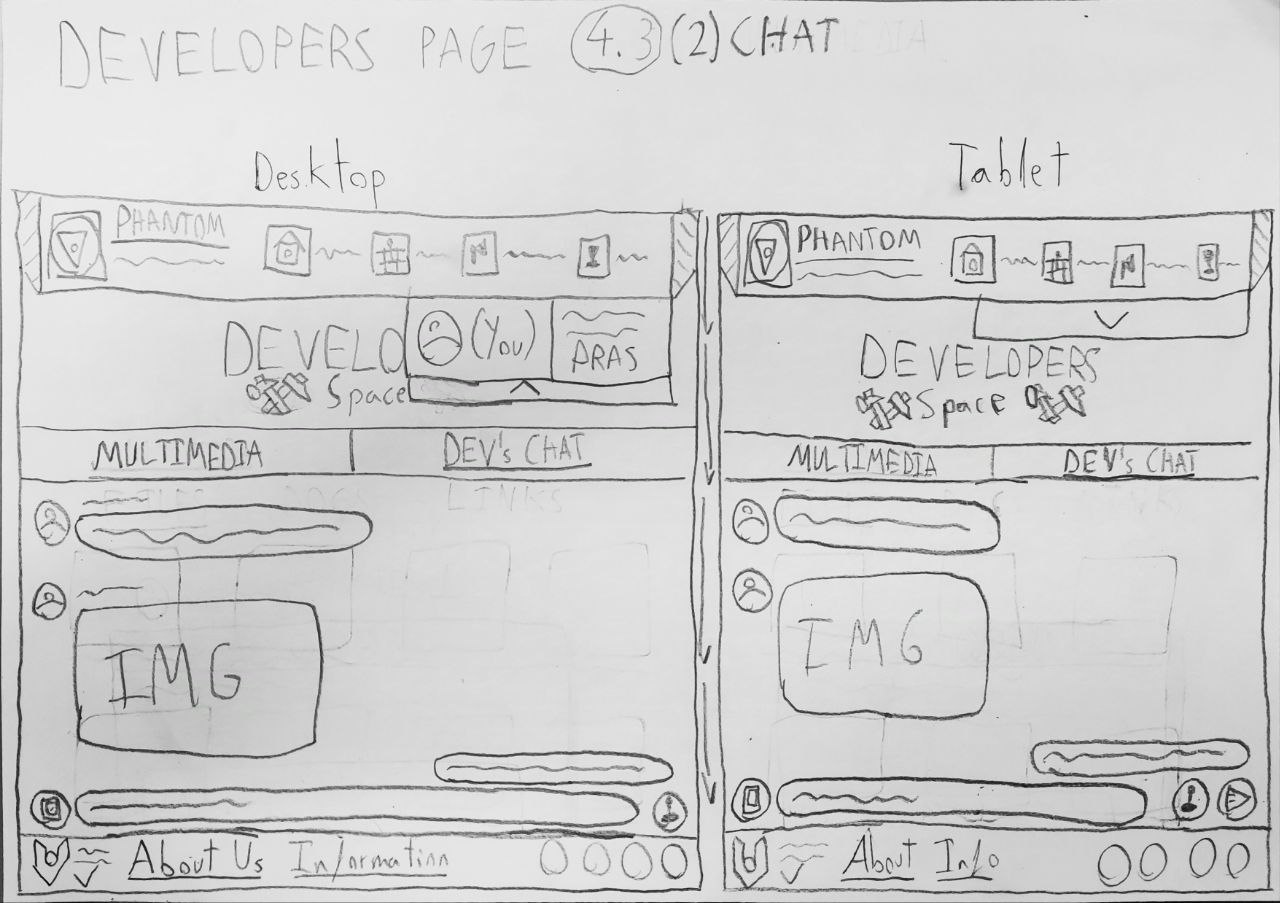 DEVELOPERS PAGE 4.3 (2) CHAT
Desktop
PHANTOM
DEVELO
(You)
ARAS
Space
MULTIMEDIA
DEV's CHAT
IMG
About Us Information
Tablet
PHANTOM
DEVELOPERS
Space
MULTIMEDIA
DEV's CHAT
IMG
About Info